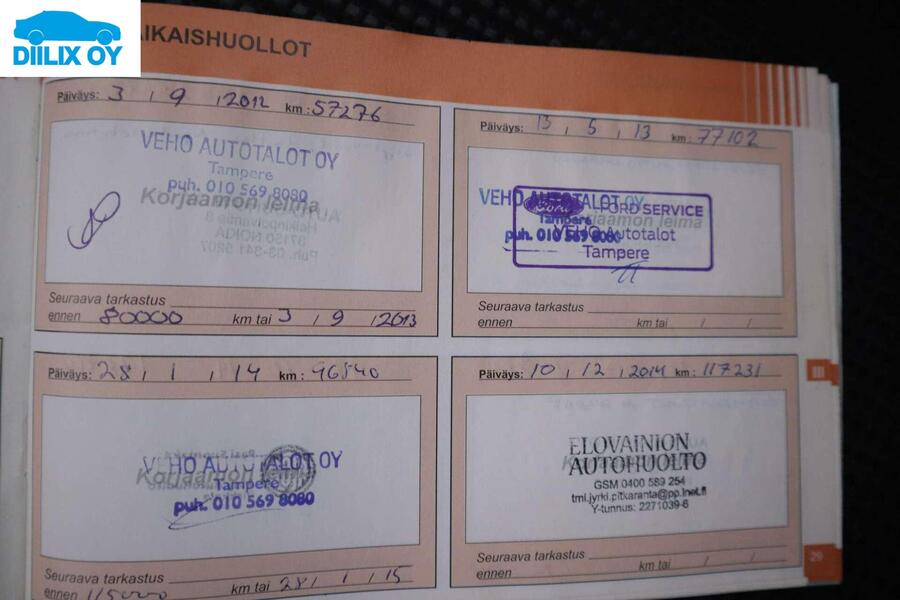 DIILIX OY
AIKAISHUOLLOT
Päiväys: 3 / 9 / 2012 km: 57276
VEHO AUTOTALOT OY
Tampere
puh. 010 569 8080
Korjaamon leima
Seuraava tarkastus
ennen 80000 km tai 3 / 9 / 2013
Päiväys: 13 / 5 / 13 km: 77102
VEHO AUTOTALOT OY
Tampere
puh. 010 569 8080
Korjaamon leima
Ford FORD SERVICE
VEHO Autotalot
Tampere
Seuraava tarkastus
ennen km tai / /
Päiväys: 28 / 1 / 14 km: 96540
VEHO AUTOTALOT OY
Tampere
puh. 010 569 8080
Korjaamon leima
Seuraava tarkastus
ennen 115000 km tai 28 / 1 / 15
Päiväys: 10 / 12 / 2014 km: 117231
ELOVAINION
AUTOHUOLTO
GSM 0400 589 254
tmi.jyrki.pitkaranta@pp.inet.fi
Y-tunnus: 2271039-6
Seuraava tarkastus
ennen km tai / /
III
29